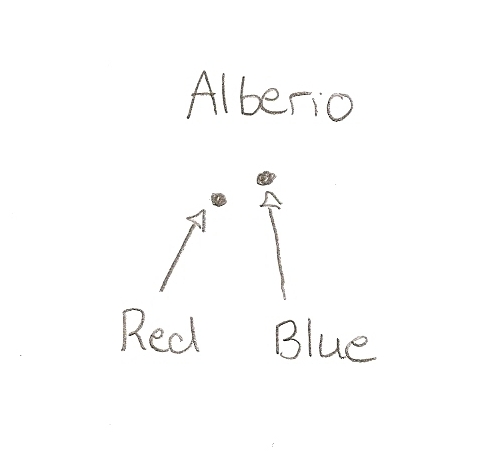 Alberio
Red Blue